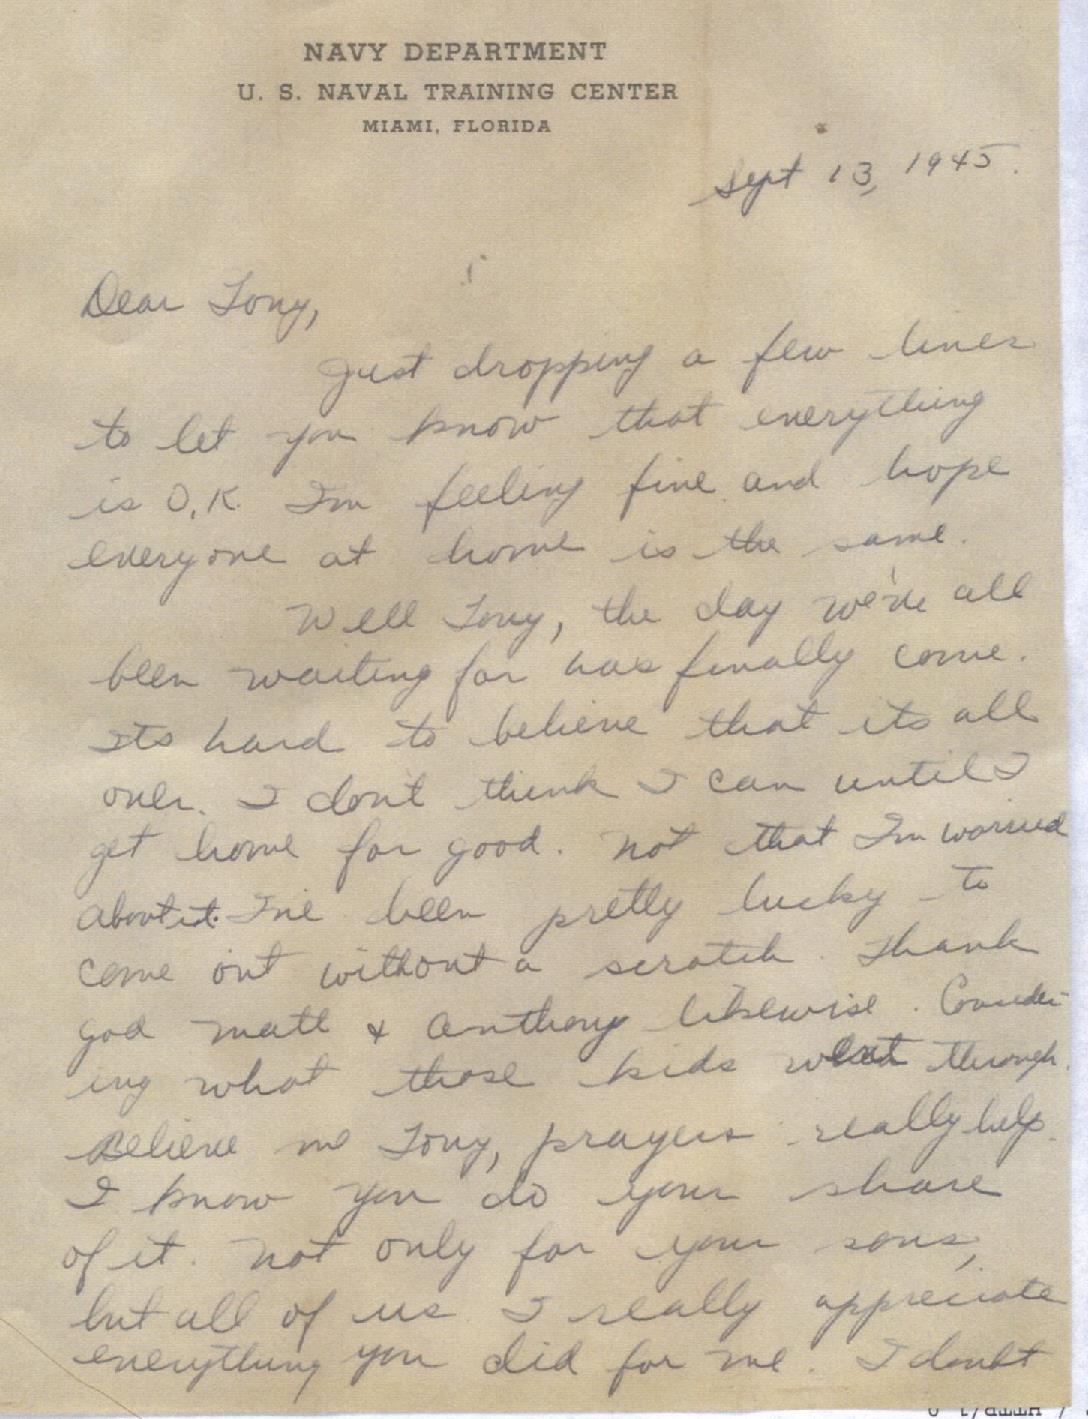 NAVY DEPARTMENT
U. S. NAVAL TRAINING CENTER
MIAMI, FLORIDA
Sept 13, 1945.
Dear Tony,
Just dropping a few lines
to let you know that everything
is O.K. I'm feeling fine and hope
everyone at home is the same.
Well Tony, the day we've all
been waiting for has finally come.
Its hard to believe that its all
over. I don't think I can until I
get home for good. Not that I'm worried
about it. I've been pretty lucky to
come out without a scratch. Thank
god Matt & Anthony likewise. Consider-
ing what those kids went through.
Believe me Tony, prayers really help.
I know you do your share
of it. Not only for your sons,
but all of us I really appreciate
everything you did for me. I doubt